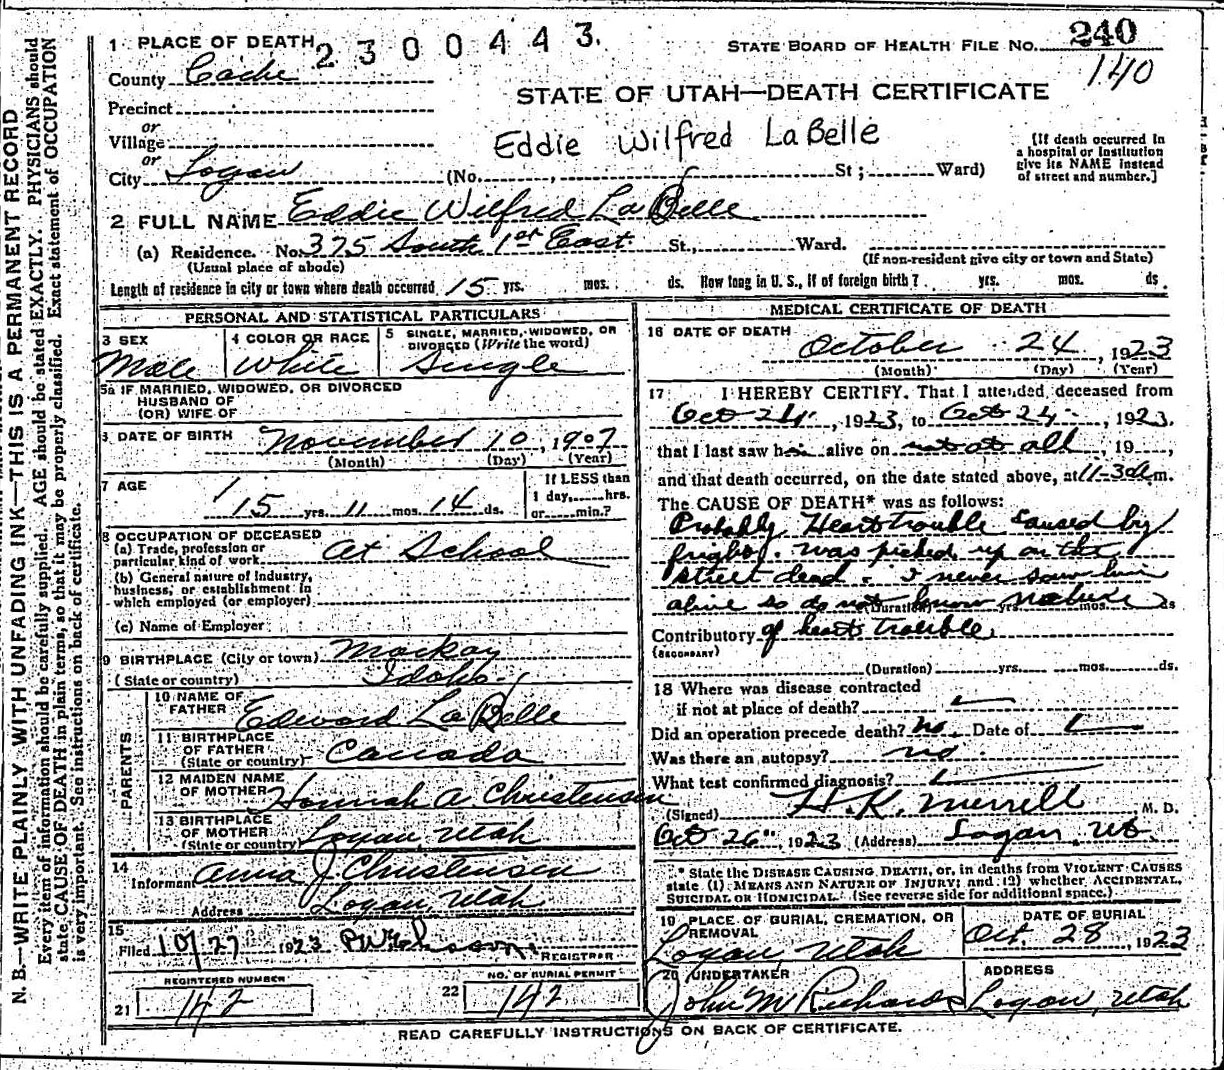 N. B.—WRITE PLAINLY WITH UNFADING INK—THIS IS A PERMANENT RECORD
Every item of information should be carefully supplied. AGE should be stated EXACTLY. PHYSICIANS should
state CAUSE OF DEATH in plain terms, so that it may be properly classified. Exact statement of OCCUPATION
is very important. See instructions on back of certificate.
1 PLACE OF DEATH 2300443.
STATE BOARD OF HEALTH FILE NO. 240
140
County Cache
STATE OF UTAH—DEATH CERTIFICATE
Precinct
or
Village
Eddie Wilfred LaBelle
[If death occurred in
a hospital or institution
give its NAME instead
of street and number.]
or
City Logan (No. , St; Ward)
2 FULL NAME Eddie Wilfred La Belle
(a) Residence. No. 375 South 1st East St., Ward.
(Usual place of abode) (If non-resident give city or town and State)
Length of residence in city or town where death occurred 15 yrs. mos. ds. How long in U. S., if of foreign birth? yrs. mos. ds.
PERSONAL AND STATISTICAL PARTICULARS
3 SEX Male
4 COLOR OR RACE White
5 SINGLE, MARRIED, WIDOWED, OR
DIVORCED (Write the word)
Single
5a IF MARRIED, WIDOWED, OR DIVORCED
HUSBAND OF
(OR) WIFE OF
DATE OF BIRTH November 10, 1907
(Month) (Day) (Year)
7 AGE
15 yrs. 11 mos. 14 ds.
If LESS than
1 day, hrs.
or min.?
8 OCCUPATION OF DECEASED
(a) Trade, profession or
particular kind of work At School
(b) General nature of industry,
business, or establishment in
which employed (or employer)
(c) Name of Employer
9 BIRTHPLACE (City or town) Mackay
(State or country) Idaho
PARENTS
10 NAME OF
FATHER Edward La Belle
11 BIRTHPLACE
OF FATHER
(State or country) Canada
12 MAIDEN NAME
OF MOTHER Hannah A Christensen
13 BIRTHPLACE
OF MOTHER
(State or country) Logan, Utah
14
Informant Anna J Christensen
Address Logan Utah
15
Filed 10/27 1923 REGISTRAR
REGISTERED NUMBER
21 142
NO. OF BURIAL PERMIT
22 142
MEDICAL CERTIFICATE OF DEATH
16 DATE OF DEATH
October 24, 1923
(Month) (Day) (Year)
17 I HEREBY CERTIFY. That I attended deceased from
Oct 24, 1923, to Oct 24, 1923.
that I last saw him alive on not at all, 19 ,
and that death occurred, on the date stated above, at 11-30 m.
The CAUSE OF DEATH* was as follows:
Probably Heart trouble caused by
fright. was picked up on the
street dead. I never saw him
alive so do not know nature
(Duration) yrs. mos. ds
Contributory of heart trouble
(SECONDARY)
(Duration) yrs. mos. ds.
18 Where was disease contracted
if not at place of death?
Did an operation precede death? No. Date of
Was there an autopsy? no.
What test confirmed diagnosis?
(Signed) H. K. Merrell M. D.
Oct 26", 1923 (Address) Logan, Ut.
* State the DISEASE CAUSING DEATH, or, in deaths from VIOLENT CAUSES
state (1) MEANS AND NATURE OF INJURY; and (2) whether ACCIDENTAL,
SUICIDAL OR HOMICIDAL. (See reverse side for additional space.)
19 PLACE OF BURIAL, CREMATION, OR
REMOVAL
Logan, Utah
DATE OF BURIAL
Oct. 28, 1923
20 UNDERTAKER
John M Richards
ADDRESS
Logan, Utah
READ CAREFULLY INSTRUCTIONS ON BACK OF CERTIFICATE.